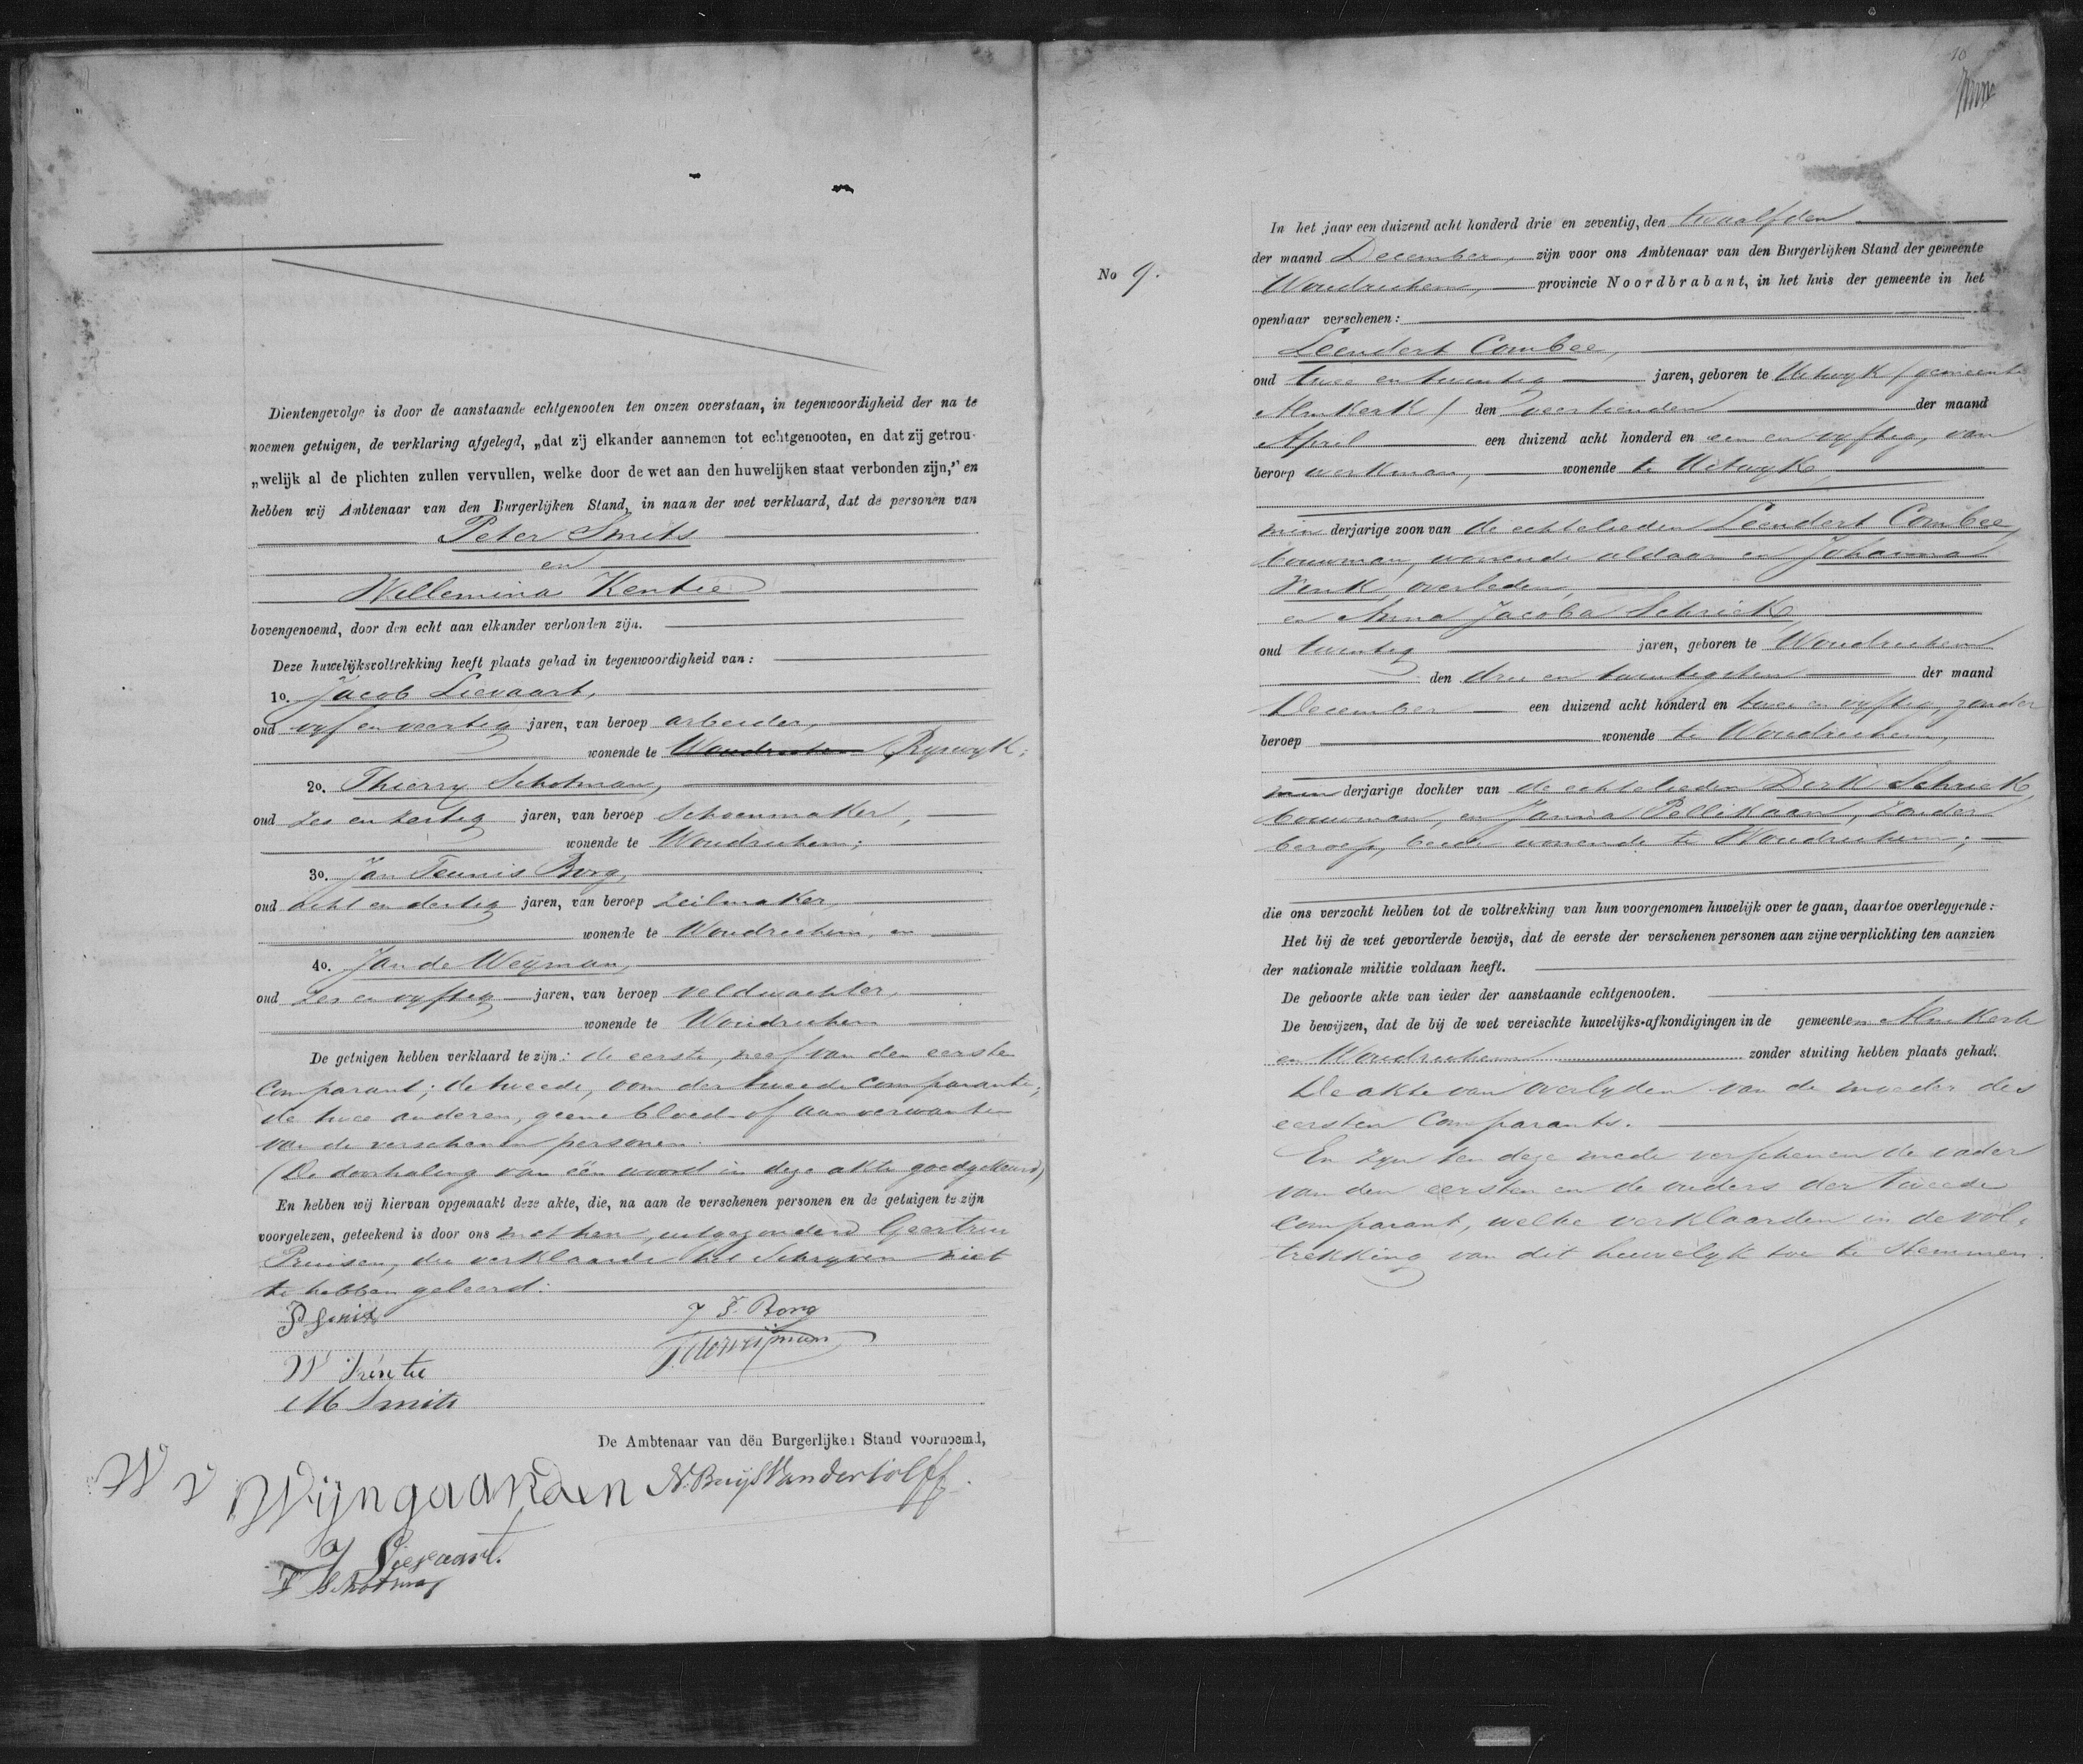 Dientengevolge is door de aanstaande echtgenooten ten onzen overstaan, in tegenwoordigheid der na te
noemen getuigen, de verklaring afgelegd, „dat zij elkander aannemen tot echtgenooten, en dat zij getrou-
„welijk al de plichten zullen vervullen, welke door de wet aan den huwelijken staat verbonden zijn," en
hebben wij Ambtenaar van den Burgerlijken Stand, in naam der wet verklaard, dat de personen van
Peter Smits
en
Willemina Kentie
bovengenoemd, door den echt aan elkander verbonden zijn.
Deze huwelijksvoltrekking heeft plaats gehad in tegenwoordigheid van:
1o. Jacob Lievaart,
oud vyf en veertig jaren, van beroep arbeider,
wonende te Woudrichem Ryswyk;
2o. Thierry Schotman,
oud zes en dertig jaren, van beroep schoenmaker,
wonende te Woudrichem;
3o. Jan Teunis Borg,
oud acht en dertig jaren, van beroep zeilmaker,
wonende te Woudrichem, en
4o. Jan de Weyman,
oud zes en vyftig jaren, van beroep veldwachter,
wonende te Woudrichem
De getuigen hebben verklaard te zijn: de eerste, neef van den eerste
comparant; de tweede, oom der tweede comparante;
de twee anderen, geene bloed- of aanverwanten
van de verschenen personen.
(De doorhaling van één woord in deze akte goedgekeurd)
En hebben wij hiervan opgemaakt deze akte, die, na aan de verschenen personen en de getuigen te zijn
voorgelezen, geteekend is door ons met hen, uitgezonderd Geertrui
Pruisen, die verklaarde het schryven niet
te hebben geleerd.
P Smits
J T. Borg
J. de Weijman
W Kentie
M Smits
De Ambtenaar van den Burgerlijken Stand voornoemd,
W v Wijngaarden
N. Buijs van der Colff
J Lievaart.
T Schotman
10
No 9.
In het jaar een duizend acht honderd drie en zeventig, den twaalfden
der maand December, zijn voor ons Ambtenaar van den Burgerlijken Stand der gemeente
Woudrichem, provincie Noordbrabant, in het huis der gemeente in het
openbaar verschenen:
Leendert Combee,
oud twee en twintig jaren, geboren te Uitwyk (gemeente
Almkerk) den veertienden der maand
April een duizend acht honderd en een en vyftig, van
beroep werkman, wonende te Uitwyk,
minderjarige zoon van de echtelieden Leendert Combee,
bouwman, wonende aldaar en Johanna
overleden,
en Anna Jacoba Schriek,
oud twintig jaren, geboren te Woudrichem
den drie en twintigsten der maand
December een duizend acht honderd en twee en vyftig, zonder
beroep wonende te Woudrichem,
minderjarige dochter van de echtelieden Derk Schriek,
bouwman, en Janna Pellikaan, zonder
beroep, beide wonende te Woudrichem;
die ons verzocht hebben tot de voltrekking van hun voorgenomen huwelijk over te gaan, daartoe overleggende:
Het bij de wet gevorderde bewijs, dat de eerste der verschenen personen aan zijne verplichting ten aanzien
der nationale militie voldaan heeft.
De geboorte akte van ieder der aanstaande echtgenooten.
De bewijzen, dat de bij de wet vereischte huwelijks-afkondigingen in de gemeenten Almkerk
en Woudrichem zonder stuiting hebben plaats gehad.
De akte van overlyden van de moeder des
eersten comparants.
En zyn ten deze mede verschenen de vader
van den eersten en de ouders der tweede
comparant, welke verklaarden in de vol-
trekking van dit huwelyk toe te stemmen.